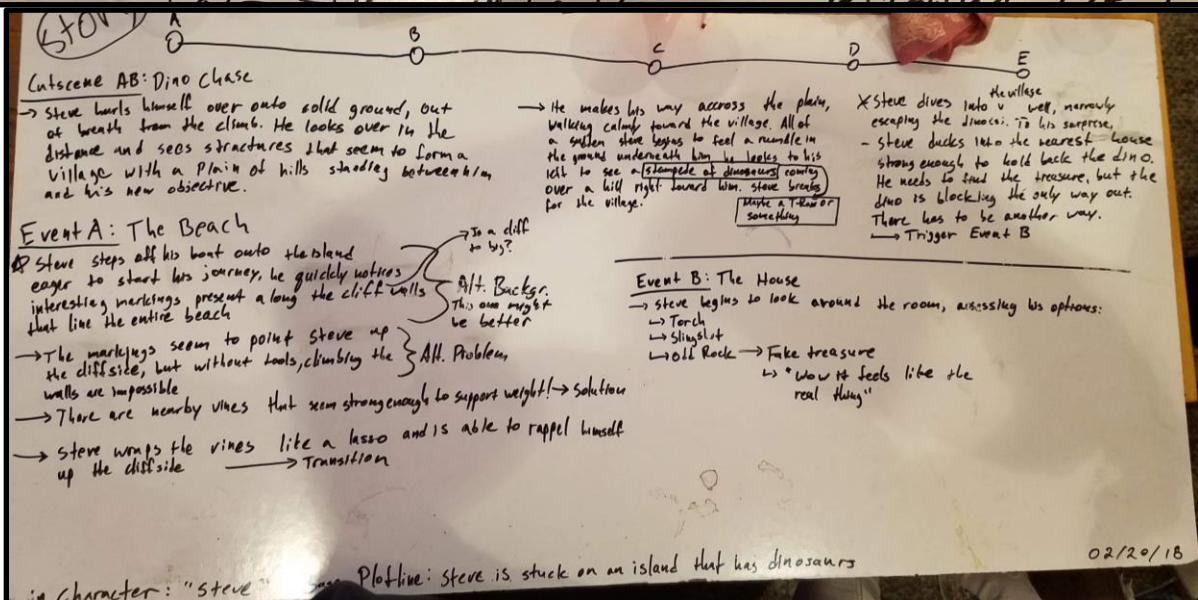 Story
A
B
C
D
E
Cutscene AB: Dino Chase
→ Steve hurls himself over onto solid ground, out
of breath from the climb. He looks over in the
distance and sees structures that seem to form a
village with a plain of hills standing between him
and his new objective.
→ He makes his way accross the plain,
walking calmly toward the village. All of
a sudden steve begins to feel a rumble in
the ground underneath him he looks to his
left to see a stampede of dinosaurs coming
over a hill right toward him. steve breaks
for the village.
Maybe a T-Rex or
something
the village
X Steve dives into v well, narrowly
escaping the dinosai. To his surprise,
- Steve ducks into the nearest house
strong enough to hold back the dino.
He needs to find the treasure, but the
dino is blocking the only way out.
There has to be another way.
→ Trigger Event B
Event A: The Beach
Steve steps off his boat onto the island
eager to start his journey, he quickly notices
interesting markings present along the cliff walls
that line the entire beach
→ Is a cliff
to big?
Alt. Backgr.
This one might
be better
→ The markings seem to point Steve up
the cliffside, but without tools, climbing the
walls are impossible
Alt. Problem
→ There are nearby vines that seem strong enough to support weight! → Solution
→ Steve wraps the vines like a lasso and is able to rappel himself
up the cliffside → Transition
Event B: The House
→ steve begins to look around the room, assessing his options:
↳ Torch
↳ Slingshot
↳ Odd Rock → Fake treasure
↳ "Wow it feels like the
real thing"
Character: "Steve"
Plotline: Steve is stuck on an island that has dinosaurs
02/20/18